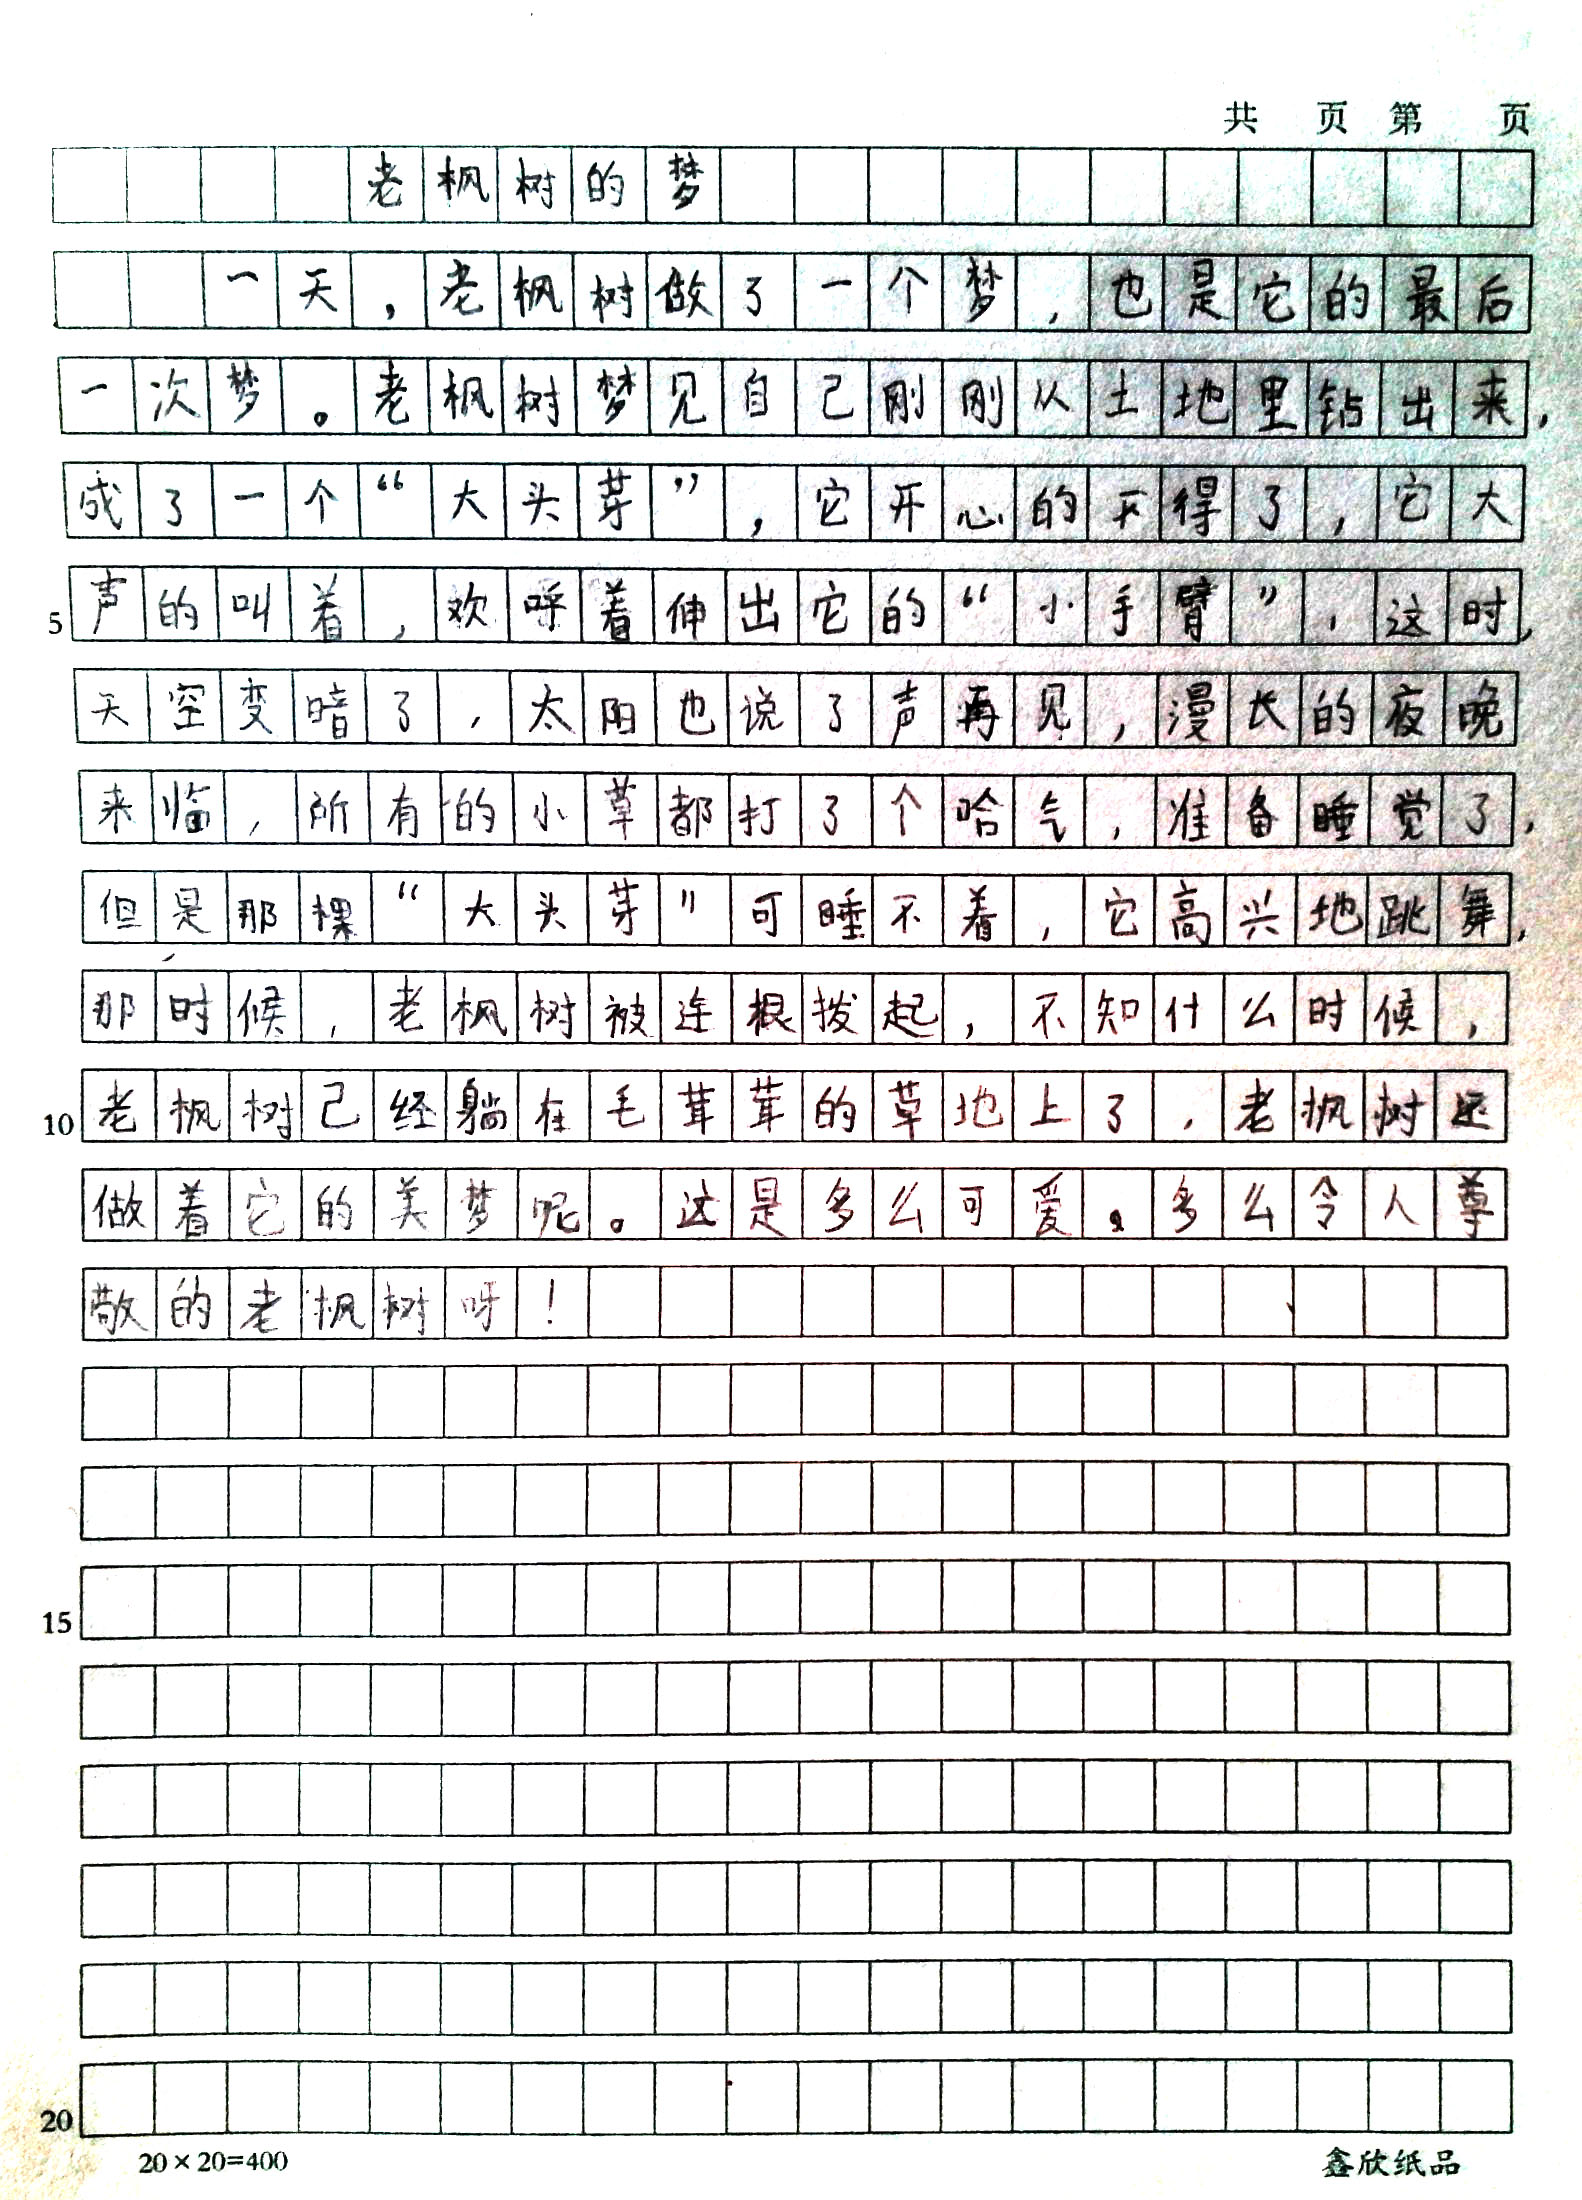 共 页 第 页
老枫树的梦
一天，老枫树做了一个梦，也是它的最后
一次梦。老枫树梦见自己刚刚从土地里钻出来，
成了一个“大头芽”，它开心的不得了，它大
5 声的叫着，欢呼着伸出它的“小手臂”，这时，
天空变暗了，太阳也说了声再见，漫长的夜晚
来临，所有的小草都打了个哈气，准备睡觉了，
但是那棵“大头芽”可睡不着，它高兴地跳舞，
那时候，老枫树被连根拨起，不知什么时候，
10 老枫树己经躺在毛茸茸的草地上了，老枫树还
做着它的美梦呢。这是多么可爱。多么令人尊
敬的老枫树呀！
15
20
20×20=400 鑫欣纸品